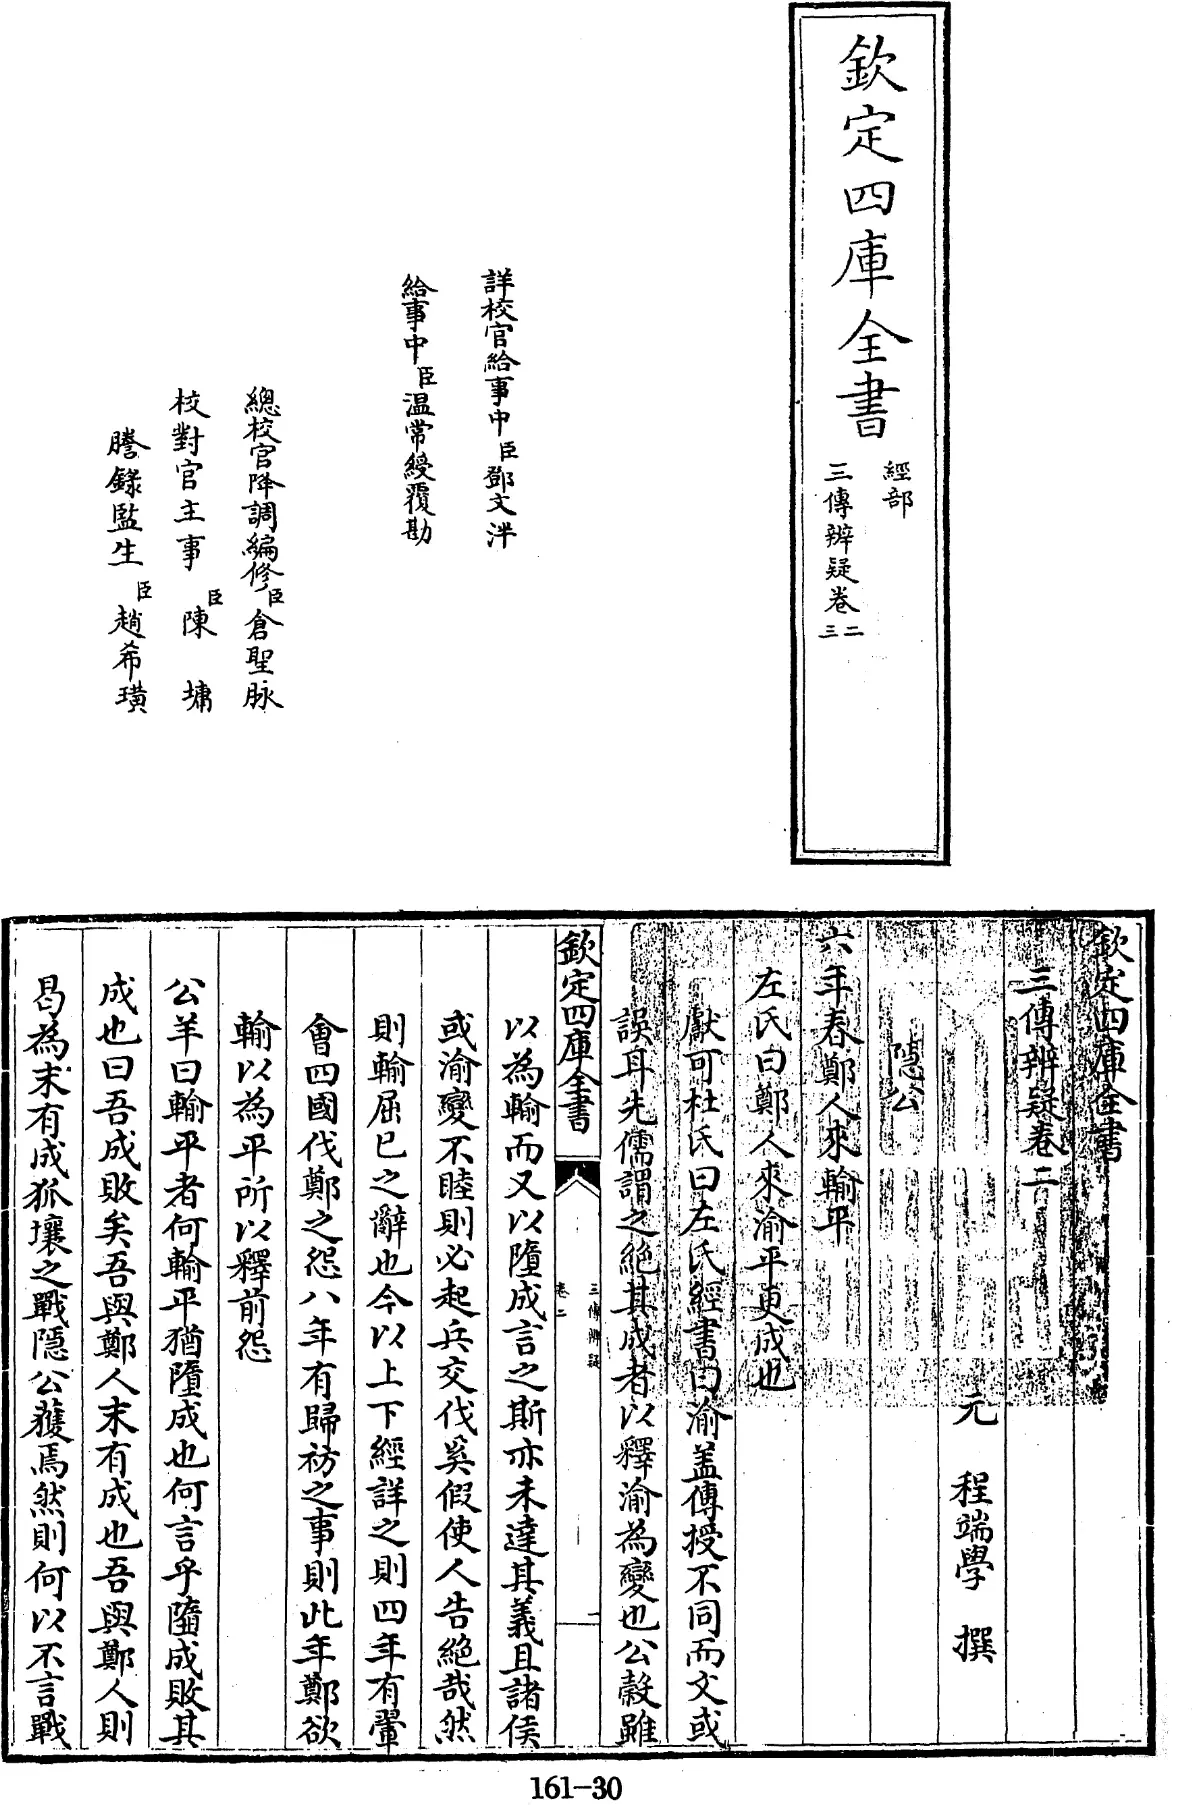 欽定四庫全書
經部
三傳辨疑卷二
三
詳校官給事中臣鄧文泮
給事中臣温常綬覆勘
總校官降調編修臣倉聖脉
校對官主事臣陳墉
謄錄監生臣趙希璜
欽定四庫全書
三傳辨疑卷二
元 程端學 撰
隱公
六年春鄭人來輸平
左氏曰鄭人來渝平更成也
獻可杜氏曰左氏經書曰渝盖傳授不同而文或
誤耳先儒謂之絶其成者以釋渝為變也公穀雖
欽定四庫全書
三傳辨疑
卷二
一
以為輸而又以墮成言之斯亦未達其義且諸侯
或渝變不睦則必起兵交伐奚假使人告絶哉然
則輸屈已之辭也今以上下經詳之則四年有翬
會四國伐鄭之怨八年有歸祊之事則此年鄭欲
輸以為平所以釋前怨
公羊曰輸平者何輸平猶墮成也何言乎墮成敗其
成也曰吾成敗矣吾與鄭人末有成也吾與鄭人則
曷為末有成狐壤之戰隱公獲焉然則何以不言戰
161-30